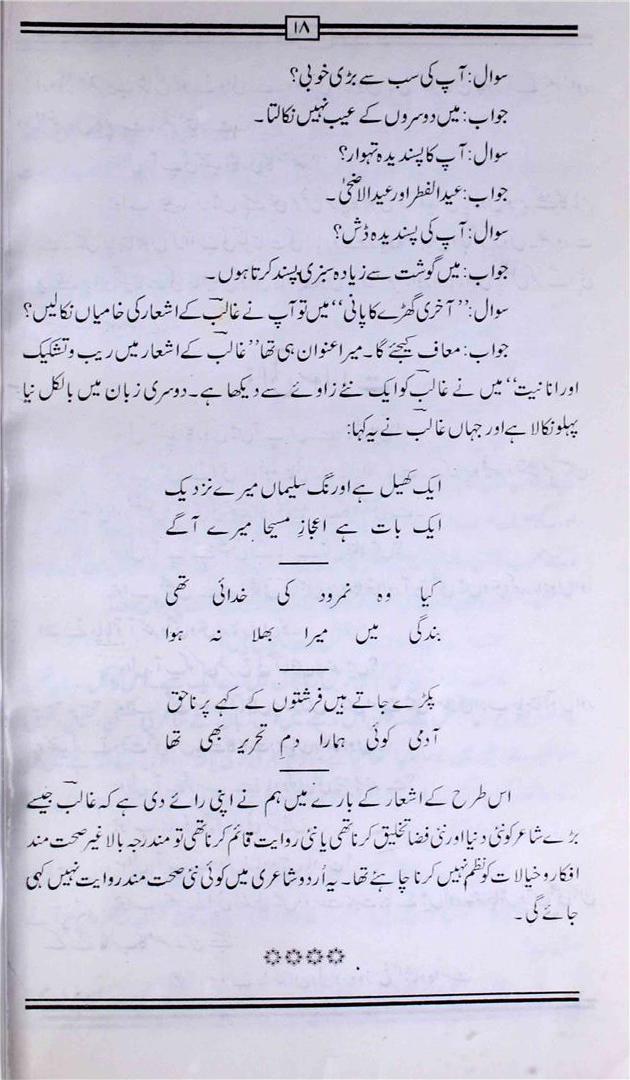 ۱۸
سوال: آپ کی سب سے بڑی خوبی؟
جواب: میں دوسروں کے عیب نہیں نکالتا۔
سوال: آپ کا پسندیدہ تہوار؟
جواب: عید الفطر اور عید الاضحیٰ۔
سوال: آپ کی پسندیدہ ڈش؟
جواب: میں گوشت سے زیادہ سبزی پسند کرتا ہوں۔
سوال: ”آخری گھڑے کا پانی“ میں تو آپ نے غالبؔ کے اشعار کی خامیاں نکالیں؟
جواب: معاف کیجئے گا۔ میرا عنوان ہی تھا ”غالبؔ کے اشعار میں ریب و تشکیک
اور انانیت“ میں نے غالبؔ کو ایک نئے زاویے سے دیکھا ہے۔ دوسری زبان میں بالکل نیا
پہلو نکالا ہے اور جہاں غالبؔ نے یہ کہا:
ایک کھیل ہے اورنگ سلیماں میرے نزدیک
ایک بات ہے اعجازِ مسیحا میرے آگے
کیا وہ نمرود کی خدائی تھی
بندگی میں میرا بھلا نہ ہوا
پکڑے جاتے ہیں فرشتوں کے کہے پر ناحق
آدمی کوئی ہمارا دمِ تحریر بھی تھا
اس طرح کے اشعار کے بارے میں ہم نے اپنی رائے دی ہے کہ غالبؔ جیسے
بڑے شاعر کو نئی دنیا اور نئی فضا تخلیق کرنا تھی یا نئی روایت قائم کرنا تھی تو مندرجہ بالا غیر صحت مند
افکار و خیالات کو نظم نہیں کرنا چاہئے تھا۔ یہ اُردو شاعری میں کوئی نئی صحت مند روایت نہیں کہی
جائے گی۔